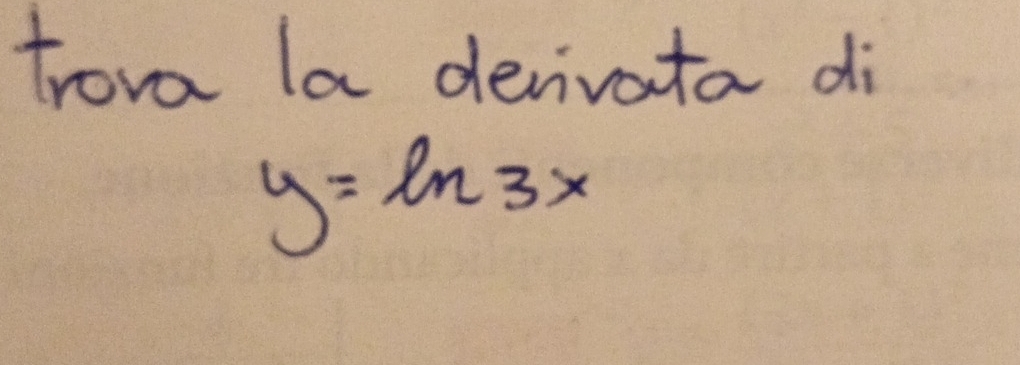 trova la derivata di
y = ln 3x